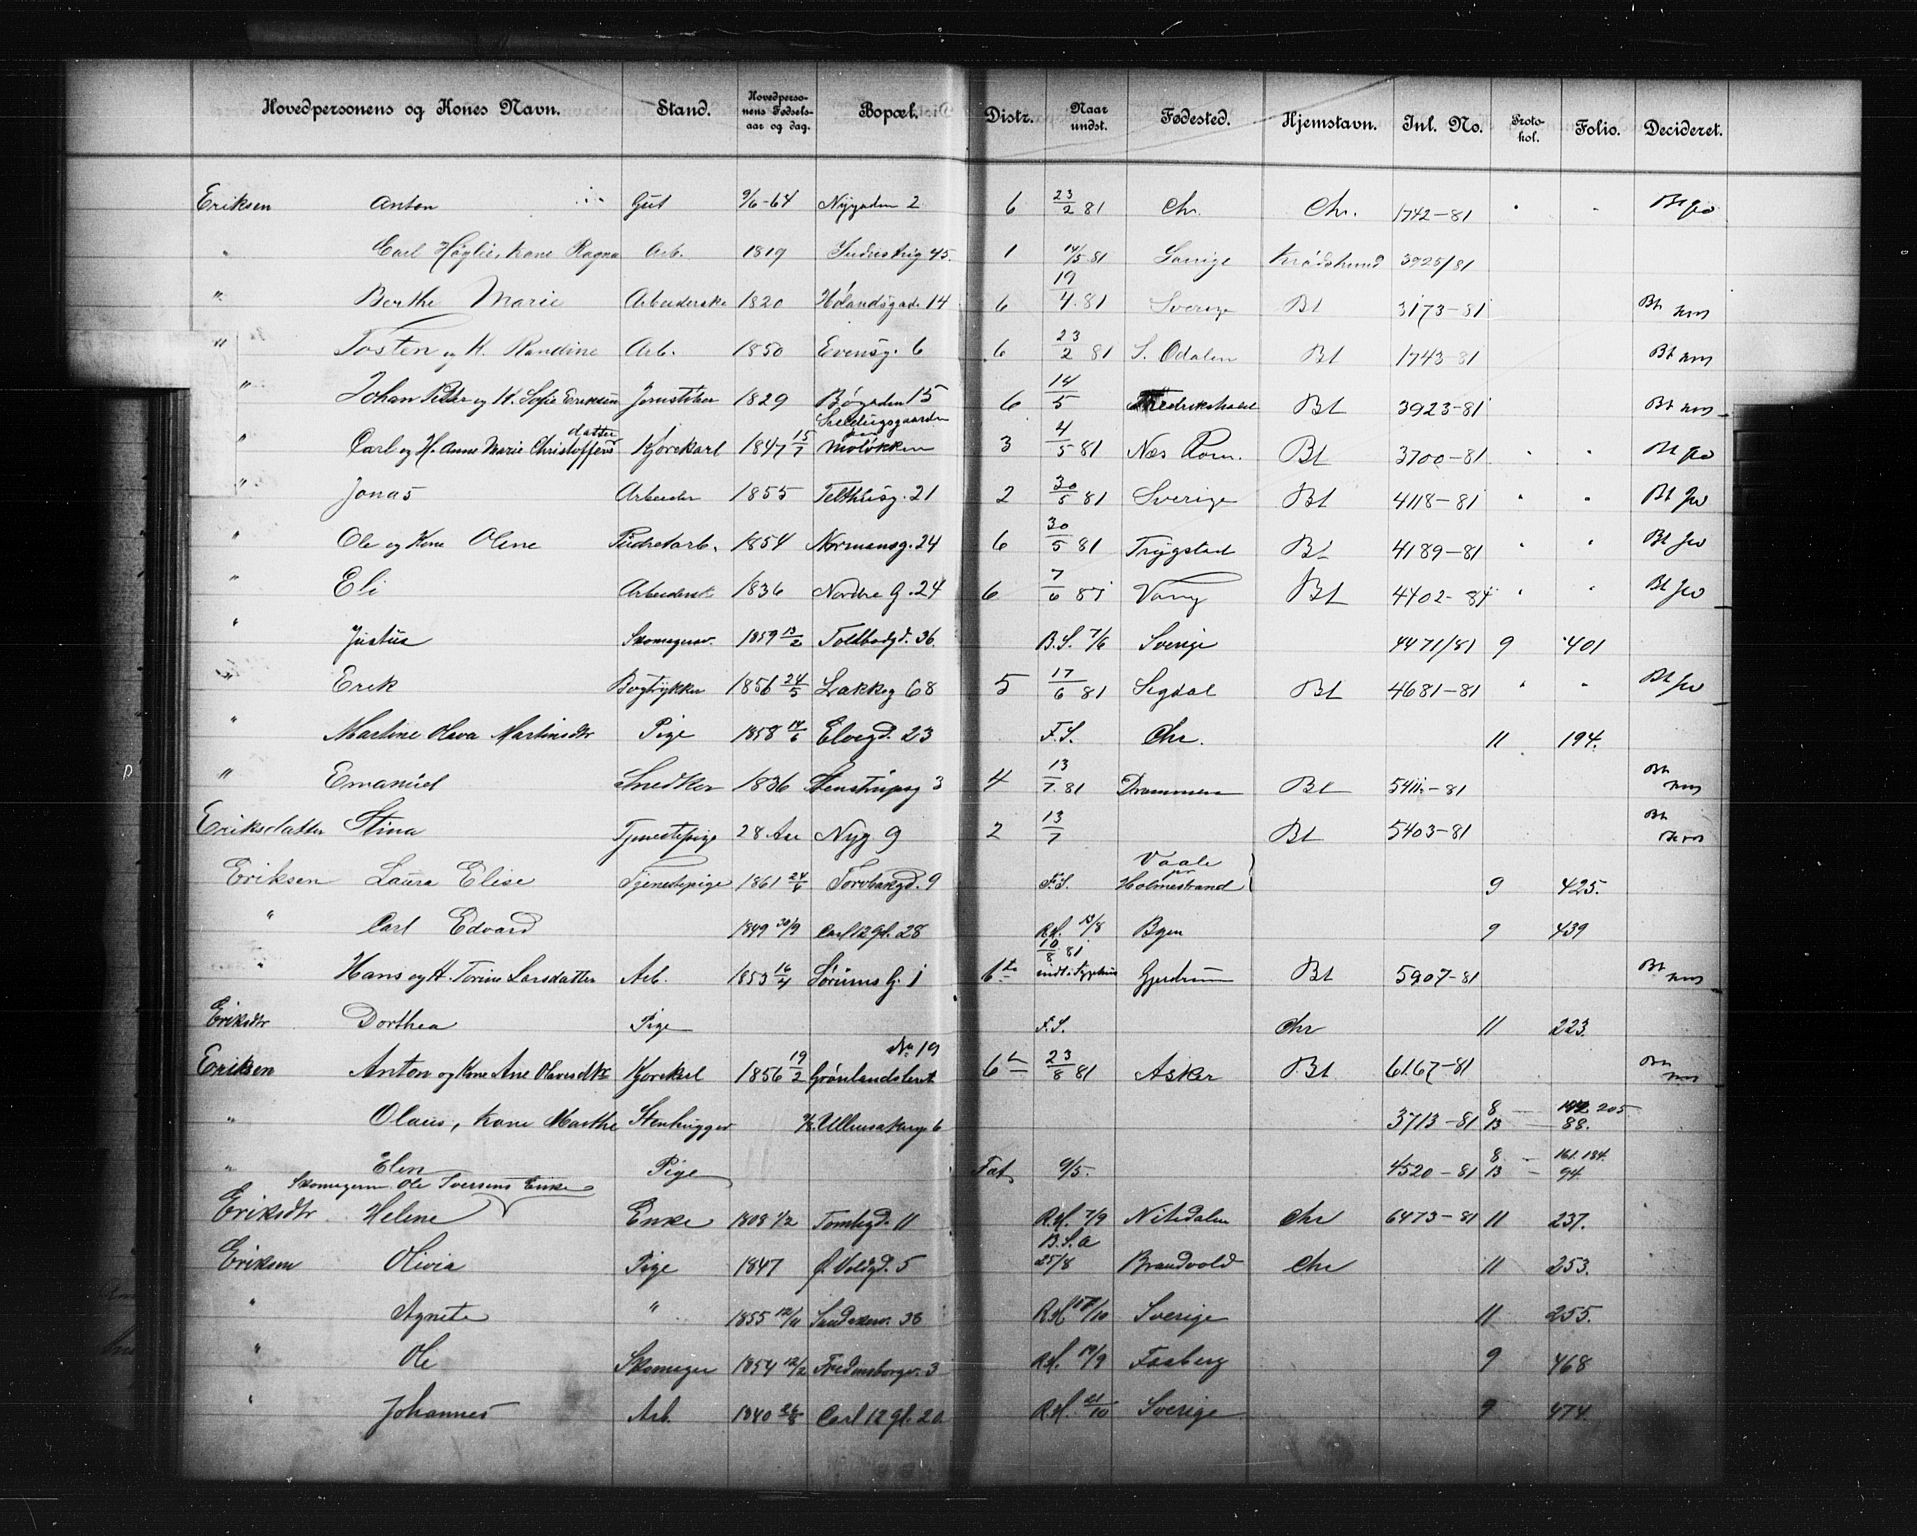 Hovedpersonens og Kones Navn. Stand. Hovedpersonens Fødselsaar og dag. Bopæl. Distr. Naar undst. Fødested. Hjemstavn. Jnl. No. Protokol. Folio. Decideret.
Eriksen Anton Gut 9/6-64 Nygaden 2 6 23/2 81 Chr. Chr. 1742-81 " " Bt
" Carl Høglie, kone Ragna Arb. 1819 45. 1 14/5 81 Sverige Krødshered 3925/81
" Berthe Marie Arbeiderske 1820 Hølandsgade 14 6 19/4 81 Sverige Bt 3173-81 Bt
" Tosten og H. Randine Arb. 1850 Evensg. 6 6 23/2 81 S. Odalen Bt 1743-81 Bt
" Johan Peter og H. Sofie Eriksen Jernstøber 1829 Bøgaden 15 6 14/5 Fredrikshald Bt 3923-81 Bt
" Carl og H. Anne Marie Christoffersdatter Kjørekarl 1847 15/7 3 4/5 81 Næs Rom. Bt 3700-81 " " Bt
" Jonas Arbeider 1855 Telthusg. 21 2 30/5 81 Sverige Bt 4118-81 " " Bt
" Ole og Kone Oline Pudretarb. 1854 Normansg. 24 6 30/5 81 Trygstad Bt 4189-81 " " Bt
" Eli Arbeidersk 1836 Nordre G. 24 6 7/6 81 Vang Bt 4402-81 " " Bt
" Justus Skomagersv. 1859 13/2 Toldbodgd. 36. B.S. 7/6 Sverige 4471/81 9 401
" Erik Bogtrykker 1856 24/5 Lakkeg 68 5 17/6 81 Sigdal Bt 4681-81 " " Bt
" Martine Olava Martinsdtr Pige 1858 14/6 Elvegd. 23 F.S. Chr. 11 194.
" Emanuel Snedker 1836 Stenstrupsg 3 4 13/7 81 Drammen Bt 5411-81 Bt
Eriksdatter Stina Tjenestepige 28 Aar Nyg 9 2 13/7 Bt 5403-81 Bt
Eriksen Laura Elise Tjenestepige 1861 24/6 Torvbakgd. 9 F.S. Vaale pr Holmestrand 9 425.
" Carl Edvard 1849 30/9 Carl 12 gt. 28 R.H. 13/8 Byen 9 439
" Hans og H. Torine Larsdatter Arb. 1853 16/4 Sørums G. 1 6te 10/8 81 indl. i Typhus Gjerdrum Bt 5907-81 Bt
Eriksdtr Dorthea Pige F.S. Chr 11 223.
Eriksen Anton og Kone Ane Olavesdtr Kjørekarl 1856 19/2 Grønlandsleret No 19 6te 23/8 81 Asker Bt 6167-81 Bt
" Olaus, kone Marthe Stenhugger Ullensakerg 6 3713-81 8 13 205 88.
" Elen Pige Fat 9/5. 4520-81 8 13 161. 184. 94.
Skomagerm. Ole Iversens Enke
Eriksdtr Helene Enke 1808 1/2 Tomtegd. 11 R.H. 7/9 Nitedalen Chr 6473-81 11 237.
Eriksen Olivia Pige 1847 Ø. Voldgd. 5 B.S.a 25/8 Brandvold Chr 11 253.
" Agnete " 1855 12/11 36 R.H. 17/10 Sverige 11 255.
" Ole Skomager 1854 12/2 Fredensborgv. 3 R.H. 19/9 Faaberg 9 468
" Johannes Arb. 1840 26/8 Carl 12 gt. 20 R.H. 21/10 Sverige 9 474.